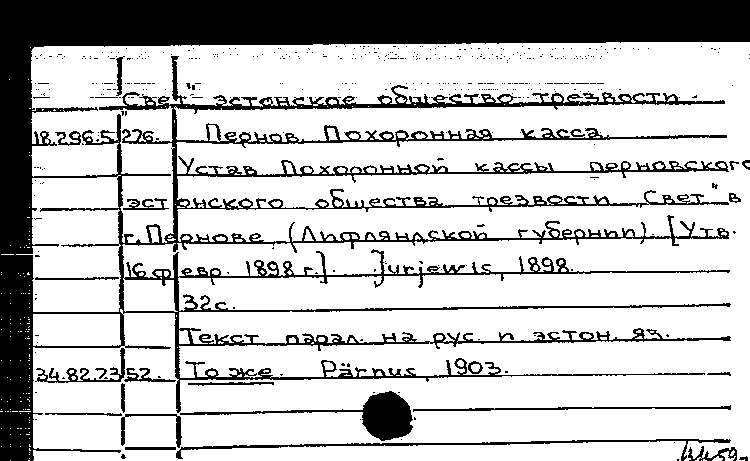 „Свет", эстонское общество трезвости.
18.296.5.276. Пернов. Похоронная касса.
Устав Похоронной кассы перновского
эстонского общества трезвости „Свет" в
г. Пернове (Лифляндской губернии). [Утв.
16 февр. 1898 г.]. Jurjewis, 1898.
32с.
Текст парал. на рус. и эстон. яз.
34.82.7352. То же. Pärnus, 1903.